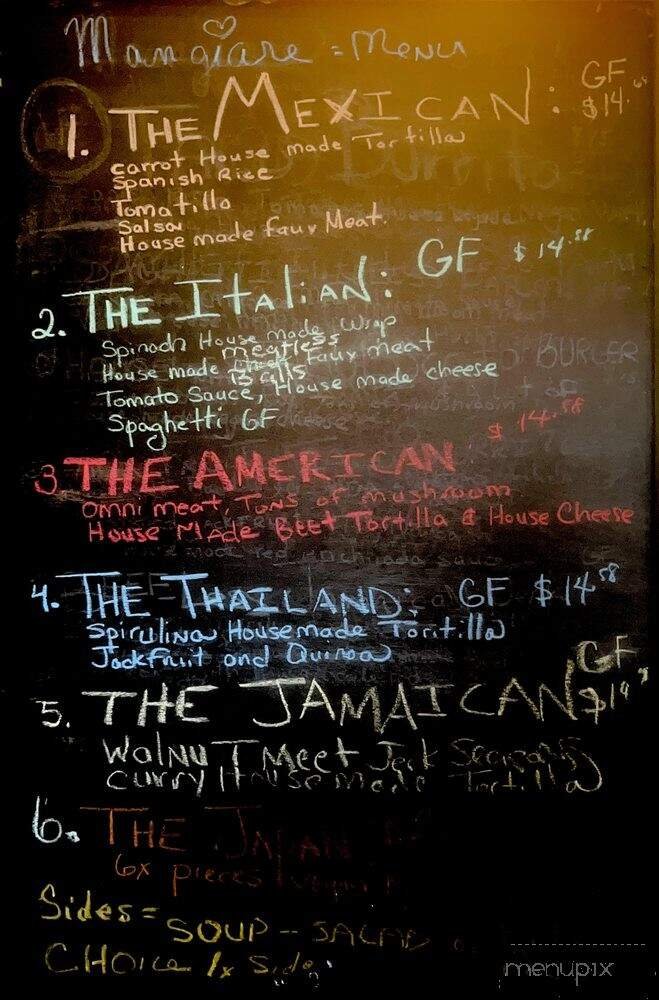 Mangiare = Menu
1. THE MEXICAN: GF $14.
carrot House made Tortilla
Spanish Rice
Tomatillo
Salsa
House made faux Meat.
2. THE ITALIAN: GF $14.58
Spinach House made wrap
House made meatless balls faux meat
Tomato Sauce, House made cheese
Spaghetti GF
3 THE AMERICAN $14.58
Omni meat, Tons of mushroom
House MAde BEET Tortilla & House Cheese
4. THE THAILAND: GF $14.58
Spirulina Housemade Tortilla
Jackfruit and Quinoa
5. THE JAMAICAN GF $14
WALNUT Meet Jerk
Curry House Made Tortilla
6. THE JAPAN
6x pieces
Sides =
SOUP - SALAD
CHOice 1x Side
menupix